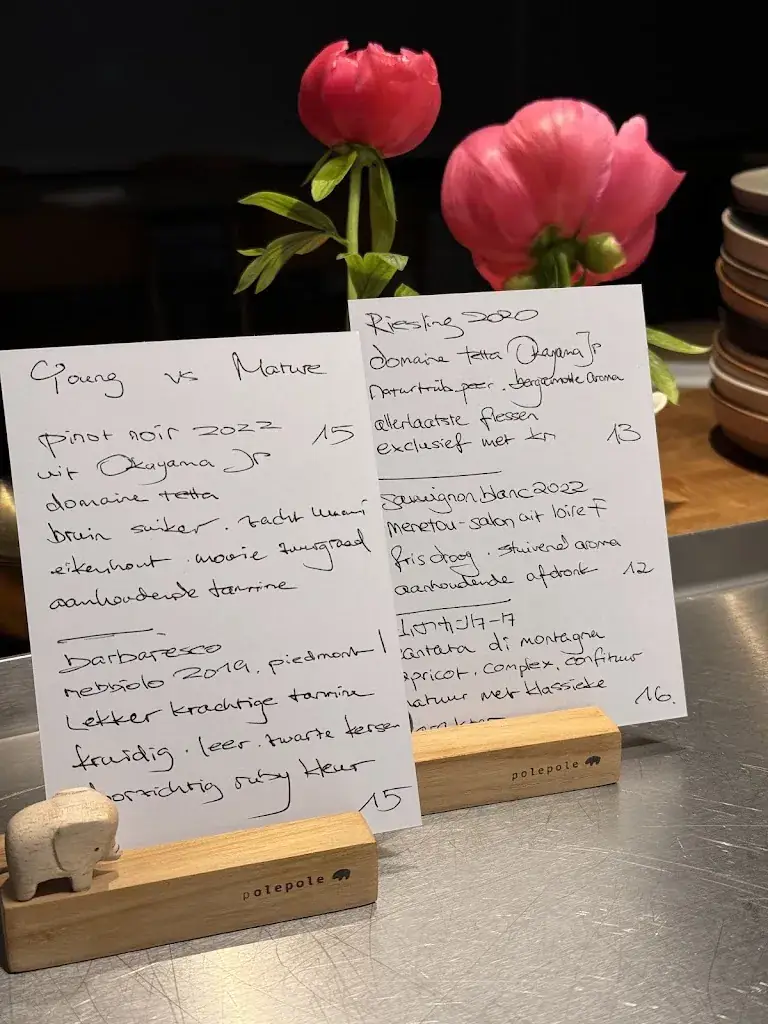 Young vs Mature
pinot noir 2022 15
uit Okayama Jp
domaine tetta
bruin suiker. zacht umami
eikenhout. mooie zuurgraad
aanhoudende tannine
Barbaresco
nebbiolo 2019. piedmont I
Lekker krachtige tannine
kruidig. leer. zwarte kersen
ruby kleur
15
polepole
Riesling 2020
domaine tetta Okayama Jp
naturtrüb. peer. bergamotte aroma
allerlaatste flessen
exclusief met kn 13
Sauvignon blanc 2022
menetou-salon uit loire F
fris droog. stuivend aroma
aanhoudende afdronk 12
di montagna
apricot. complex. confituur
natuur met klassieke
16.
polepole